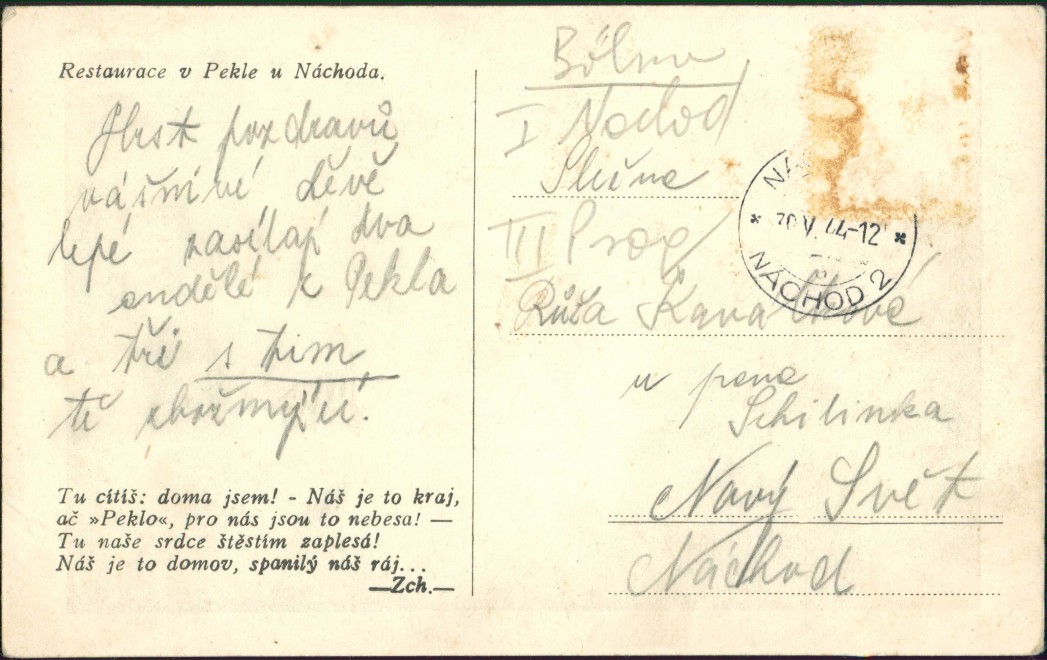 Restaurace v Pekle u Náchoda.
Hrst pozdravů
vášnivé děvě
lepé zasílají dva
andělé z Pekla
a tři s tím
tě zbožnující.
Tu cítíš: doma jsem! - Náš je to kraj,
ač »Peklo«, pro nás jsou to nebesa! —
Tu naše srdce štěstím zaplesá!
Náš je to domov, spanilý náš ráj...
—Zch.—
I Nachod
Slečna
III
Růža
u pana
Schilinka
Nový Svět
Náchod
30 V. 44-12
NÁCHOD 2